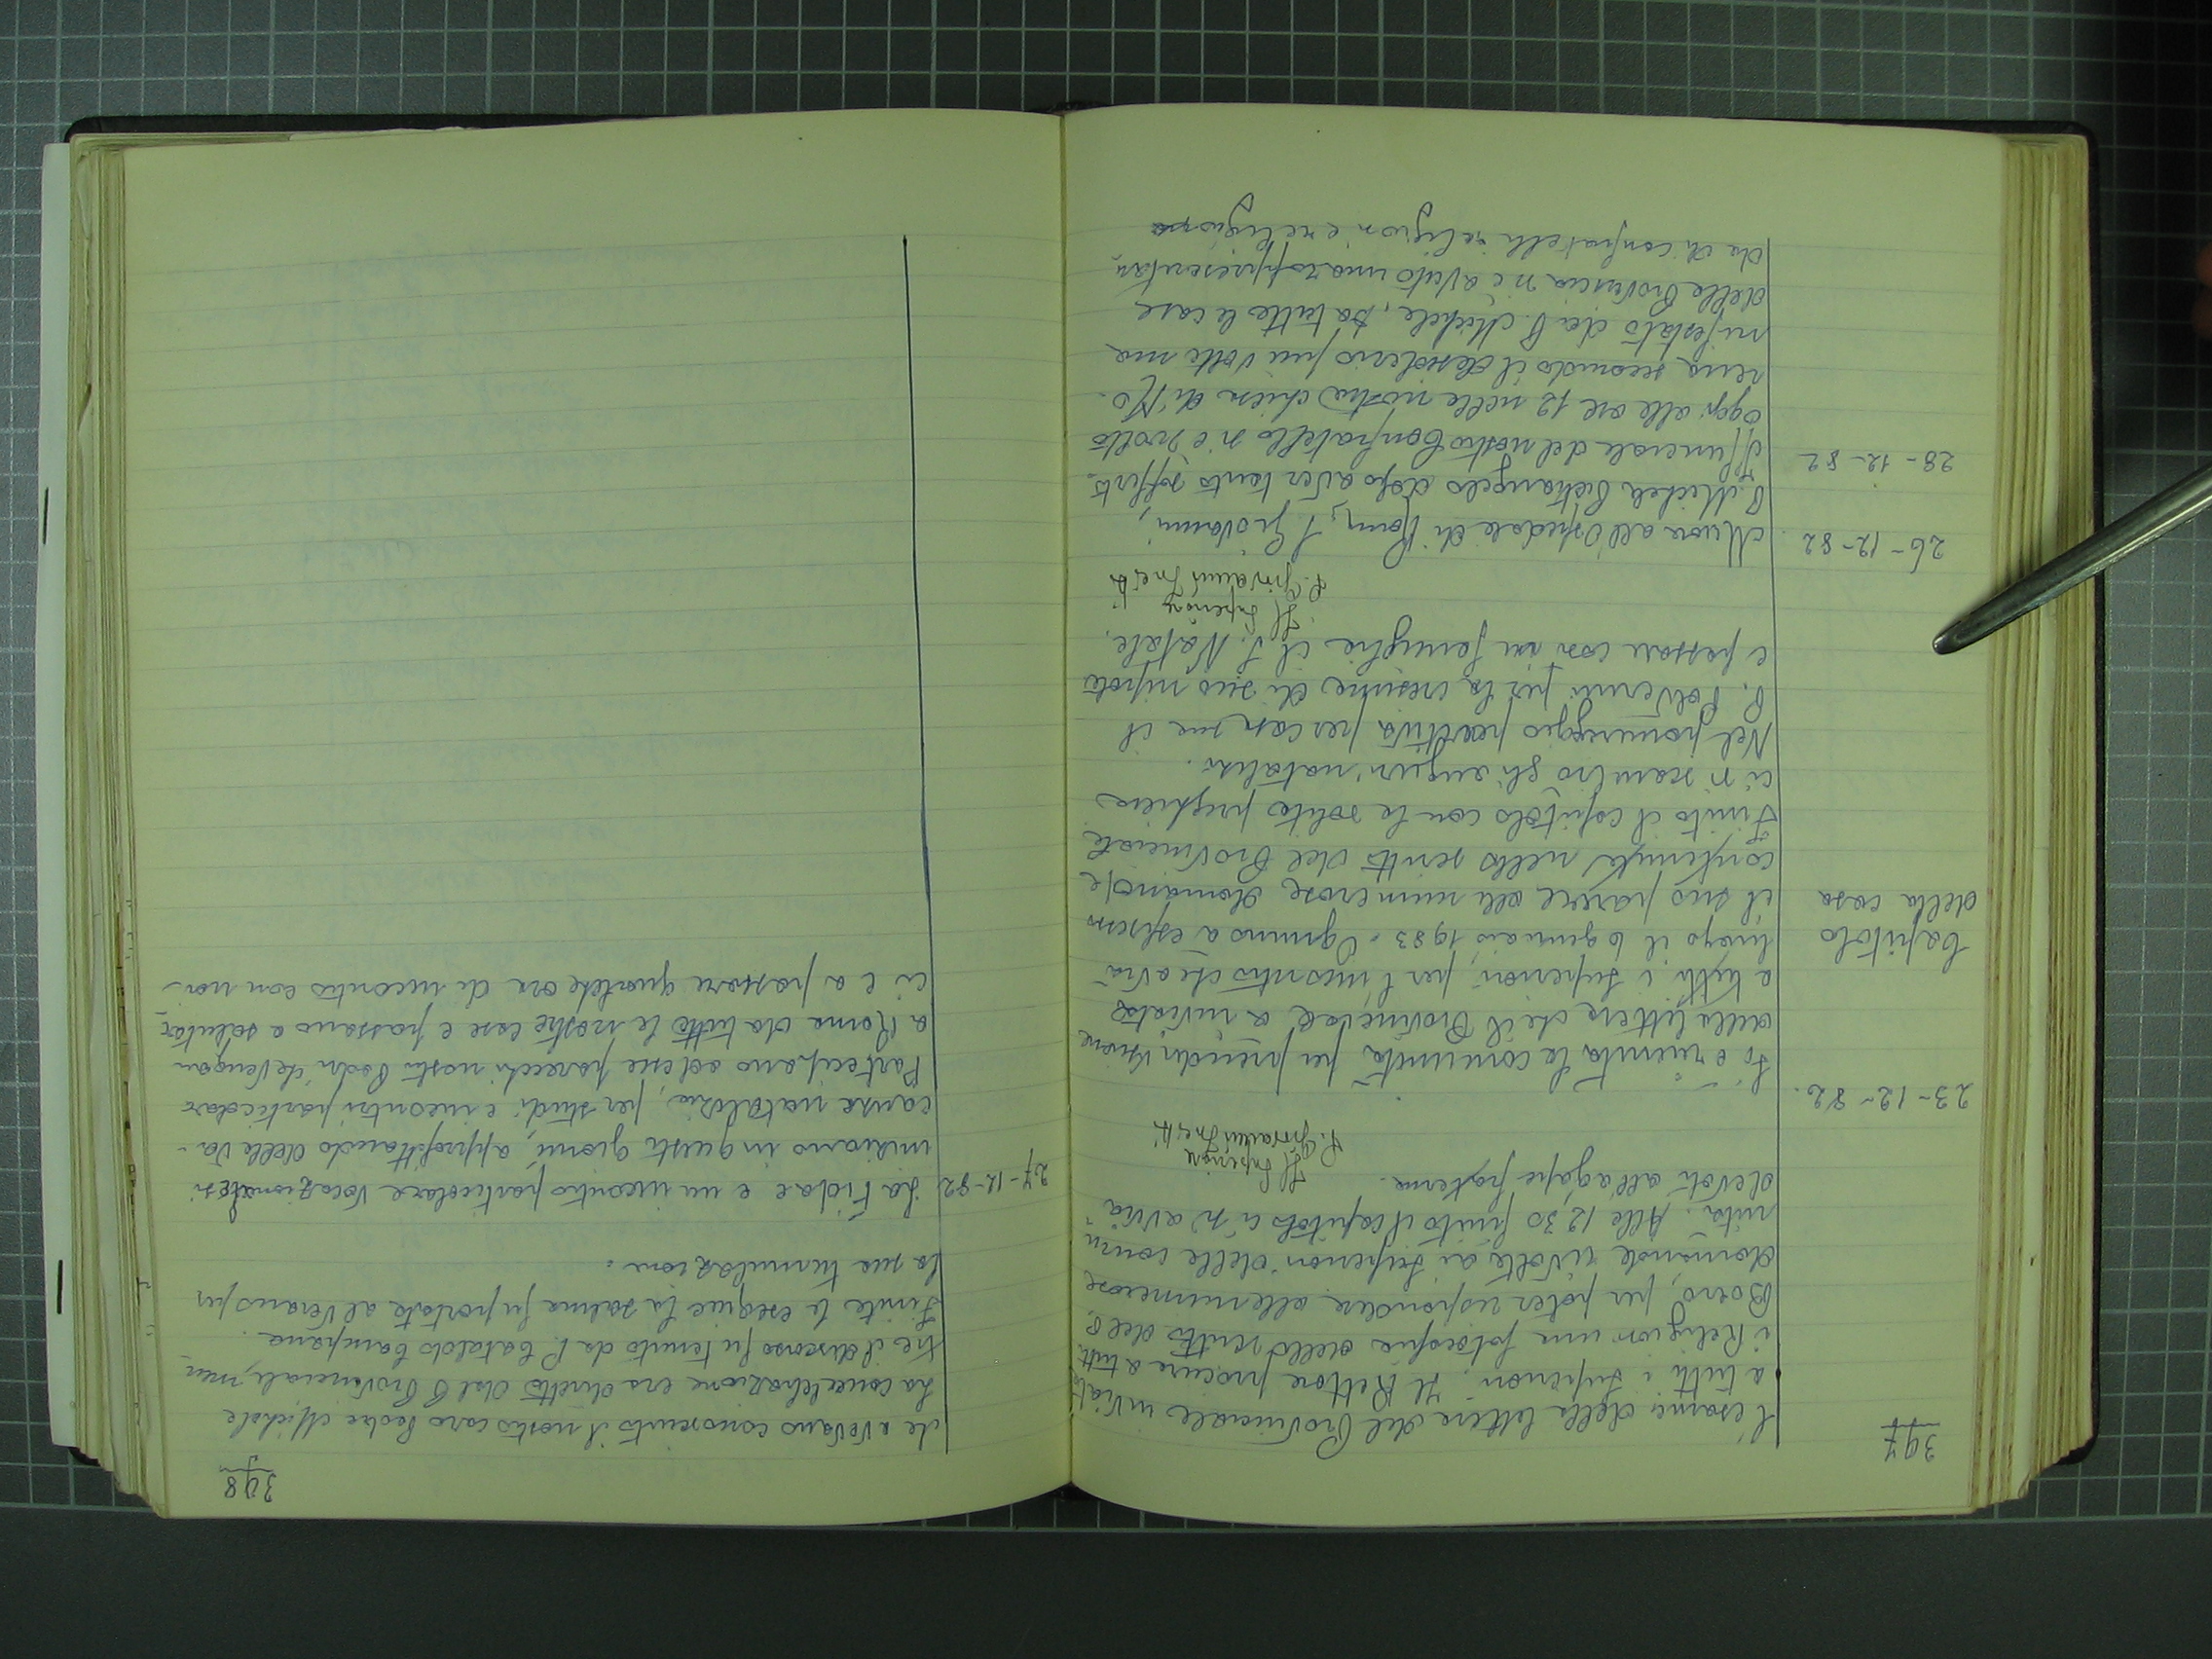 397
l'esami della lettera del Provinciale inviata
a tutti i Superiori. Il Rettore procura a tutti
i Religiosi una fotocopia dello scritto del P.
Boero, per poter rispondere alle numerose
domande rivolte ai Superiori delle comu
nità. Alle 12,30 finito il capitolo ci si avvia
devoti all'agape fraterna.
Il Superiore
P. Giovanni
23-12-82.
Si è riunita la comunità per prender visione
della lettera che il Provinciale a inviato
a tutti i Superiori, per l'incontro che avrà
Capitolo
della casa
luogo il 6 gennaio 1983. Ognuno a espresso
il suo parere alle numerose domande
contenute nello scritto del Provinciale
Finito il capitolo con le solite preghiere
ci si scambio gli auguri natalizi.
Nel pomeriggio partiva per casa sua il
P. Polverini per la cresima di suo nipote
e passare così in famiglia il S. Natale.
Il Superiore
P. Giovanni
26-12-82
Muore all'Ospedale di Roma, S. Giovanni,
P. Michele Pietrangelo dopo aver tanto sofferto.
28-12-82
Il funerale del nostro Confratello si è svolto
oggi alle ore 12 nella nostra chiesa di
secondo il desiderio più volte ma
nifestato da P. Michele, da tutte le case
della Provincia si è avuto una rappresentan
za di confratelli religiosi e religiose
398
che avevano conosciuto il nostro caro Padre Michele
La concelebrazione era diretta dal P. Provinciale, men
tre il discorso fu tenuto da P. Cataldo Campana.
Finite le esequie la salma fu portata al Verano per
la sua tumulazione.
27-12-82
La Fidae e un incontro particolare vocazionale si
iniziano in questi giorni, approfittando della va-
canza natalizia, per studi e incontri particolari
Partecipano ad esse parecchi nostri Padri che vengono
a Roma da tutte le nostre case e passano a salutar
ci e a passare qualche ora di incontro con noi.